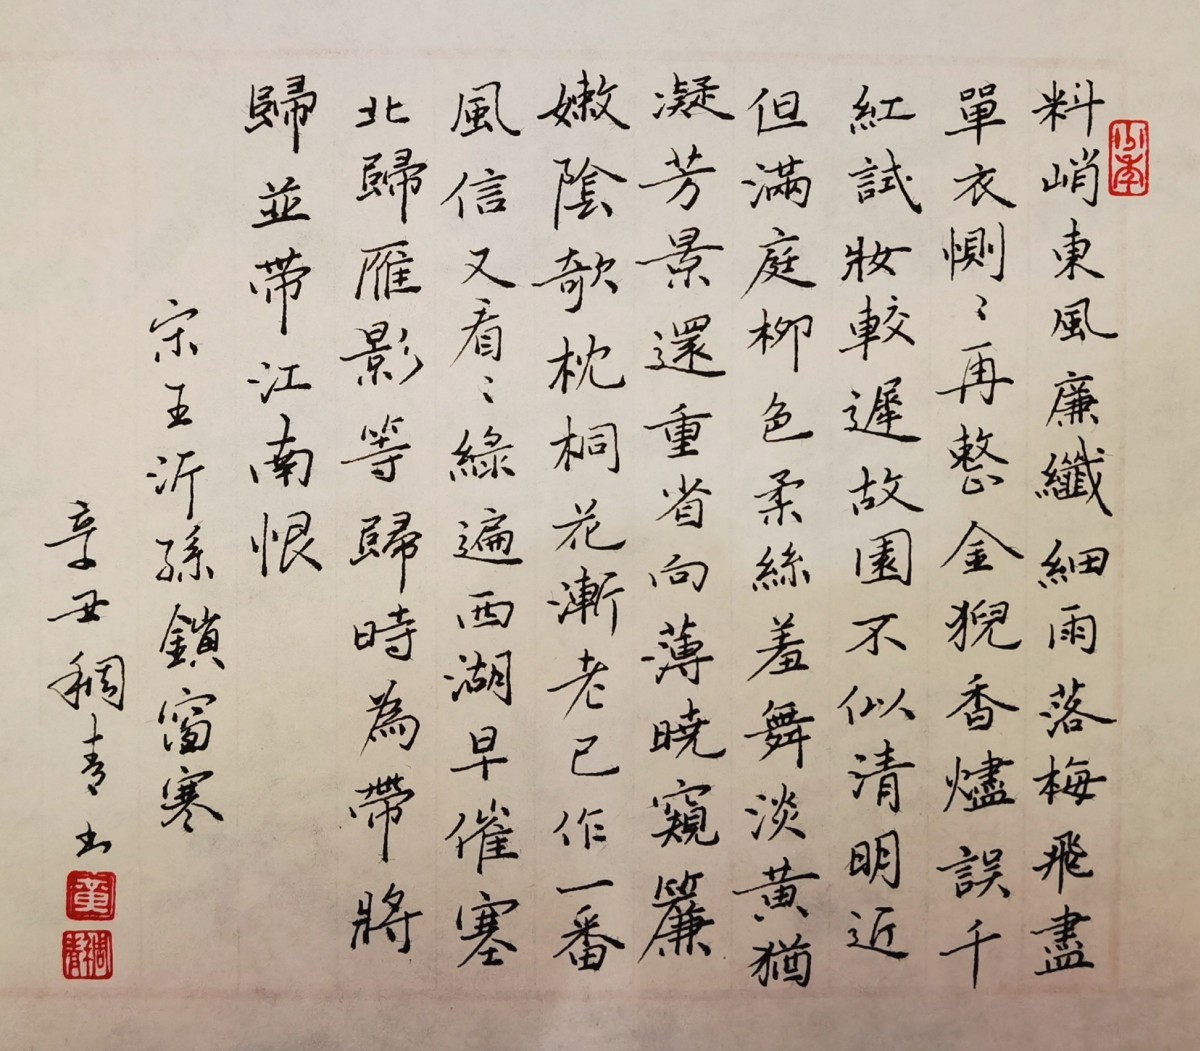 料峭東風廉纖細雨落梅飛盡
單衣惻〻再整金猊香燼誤千
紅試妝較遲故園不似清明近
但滿庭柳色柔絲羞舞淡黃猶
凝芳景還重省向薄曉窺簾
嫩陰欹枕桐花漸老已作一番
風信又看〻綠遍西湖早催塞
北歸雁影等歸時為帶將
歸並帶江南恨
宋王沂孫鎖窗寒
辛丑稠青書